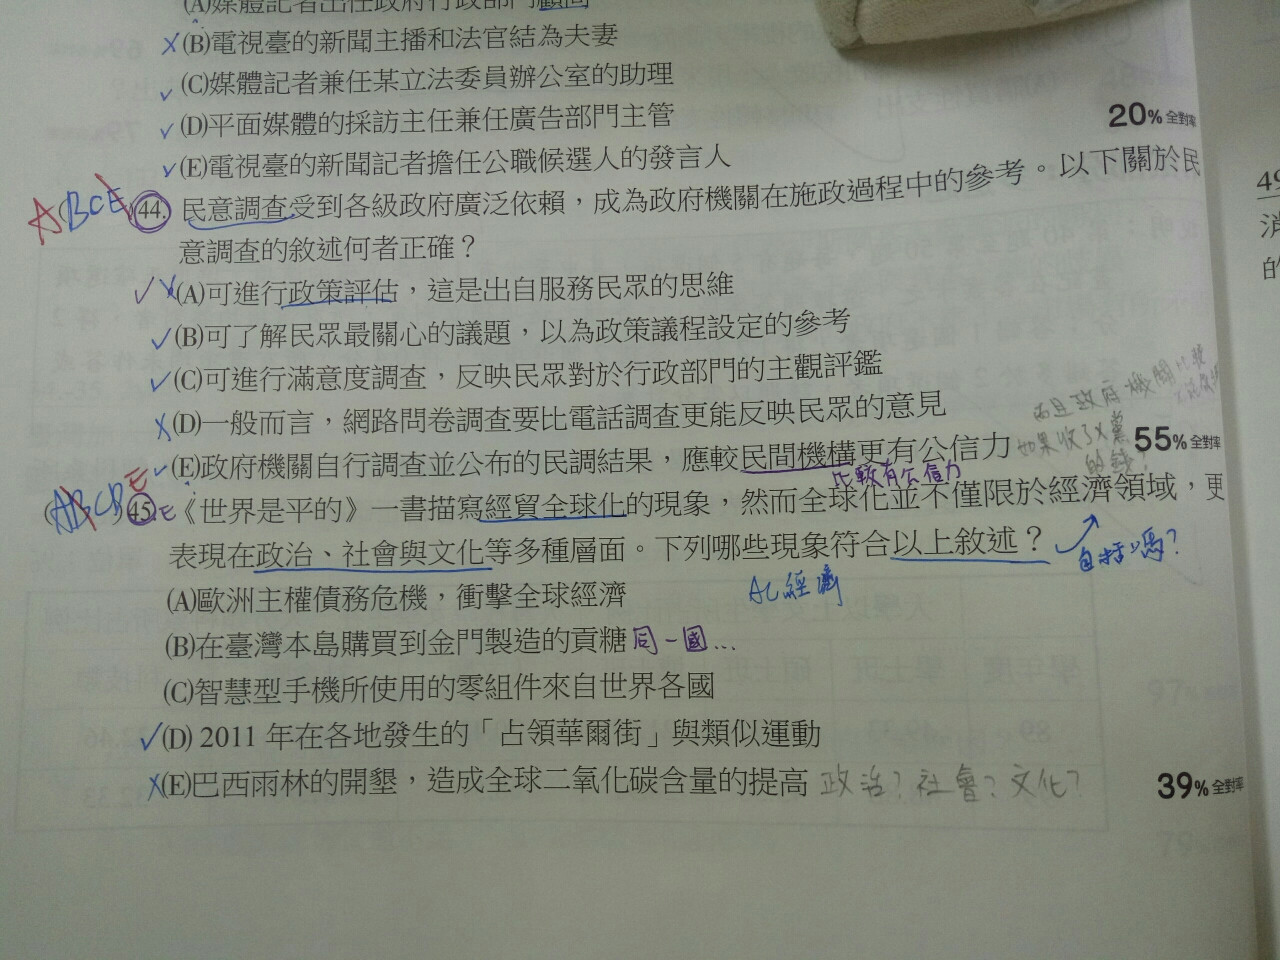 (A)媒體記者出任政府行政部門顧問
(B)電視臺的新聞主播和法官結為夫妻
(C)媒體記者兼任某立法委員辦公室的助理
(D)平面媒體的採訪主任兼任廣告部門主管
20%全對率
(E)電視臺的新聞記者擔任公職候選人的發言人
ABCE 44. 民意調查受到各級政府廣泛依賴，成為政府機關在施政過程中的參考。以下關於民
意調查的敘述何者正確？
(A)可進行政策評估，這是出自服務民眾的思維
(B)可了解民眾最關心的議題，以為政策議程設定的參考
(C)可進行滿意度調查，反映民眾對於行政部門的主觀評鑑
(D)一般而言，網路問卷調查要比電話調查更能反映民眾的意見
而且政府機關
(E)政府機關自行調查並公布的民調結果，應較民間機構更有公信力
如果收了X黨
的錢！
55%全對率
比較有公信力
45. 《世界是平的》一書描寫經貿全球化的現象，然而全球化並不僅限於經濟領域，更
表現在政治、社會與文化等多種層面。下列哪些現象符合以上敘述？
包括嗎？
AC經濟
(A)歐洲主權債務危機，衝擊全球經濟
(B)在臺灣本島購買到金門製造的貢糖 同一國…
(C)智慧型手機所使用的零組件來自世界各國
(D) 2011 年在各地發生的「占領華爾街」與類似運動
(E)巴西雨林的開墾，造成全球二氧化碳含量的提高 政治？社會？文化？
39%全對率
49
消
的